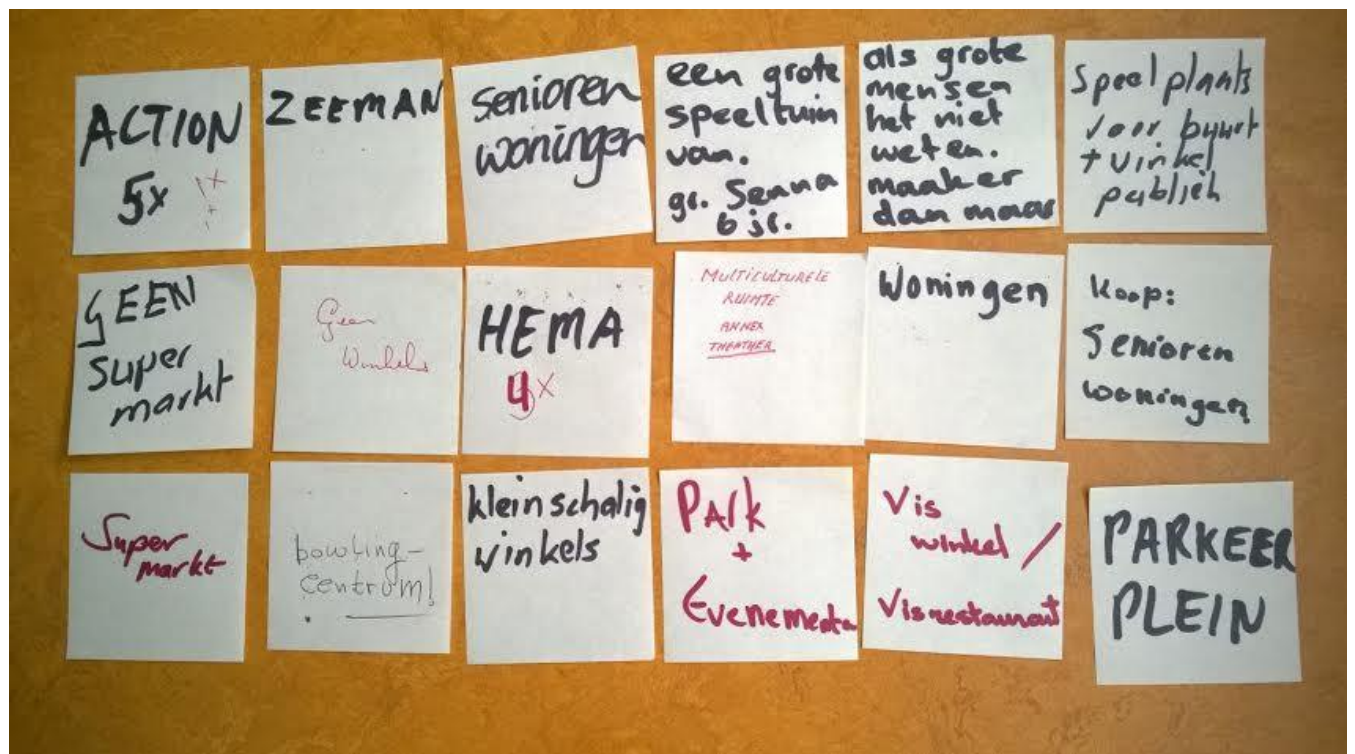 ACTION
5x
ZEEMAN
senioren
woningen
een grote
speeltuin
van.
gr. Senna
6 jr.
als grote
mensen
het niet
weten.
maak er
dan maar
Speelplaats
voor buurt
+ winkel
publiek
GEEN
super
markt
Geen
Winkels
HEMA
4x
MULTICULTURELE
RUIMTE
ANNEX
THEATHER
Woningen
Koop:
Senioren
woningen
Super
markt
bowling-
centrum!
kleinschalig
winkels
Park
+
Evenementen
Vis
winkel /
Visrestaurant
PARKEER
PLEIN